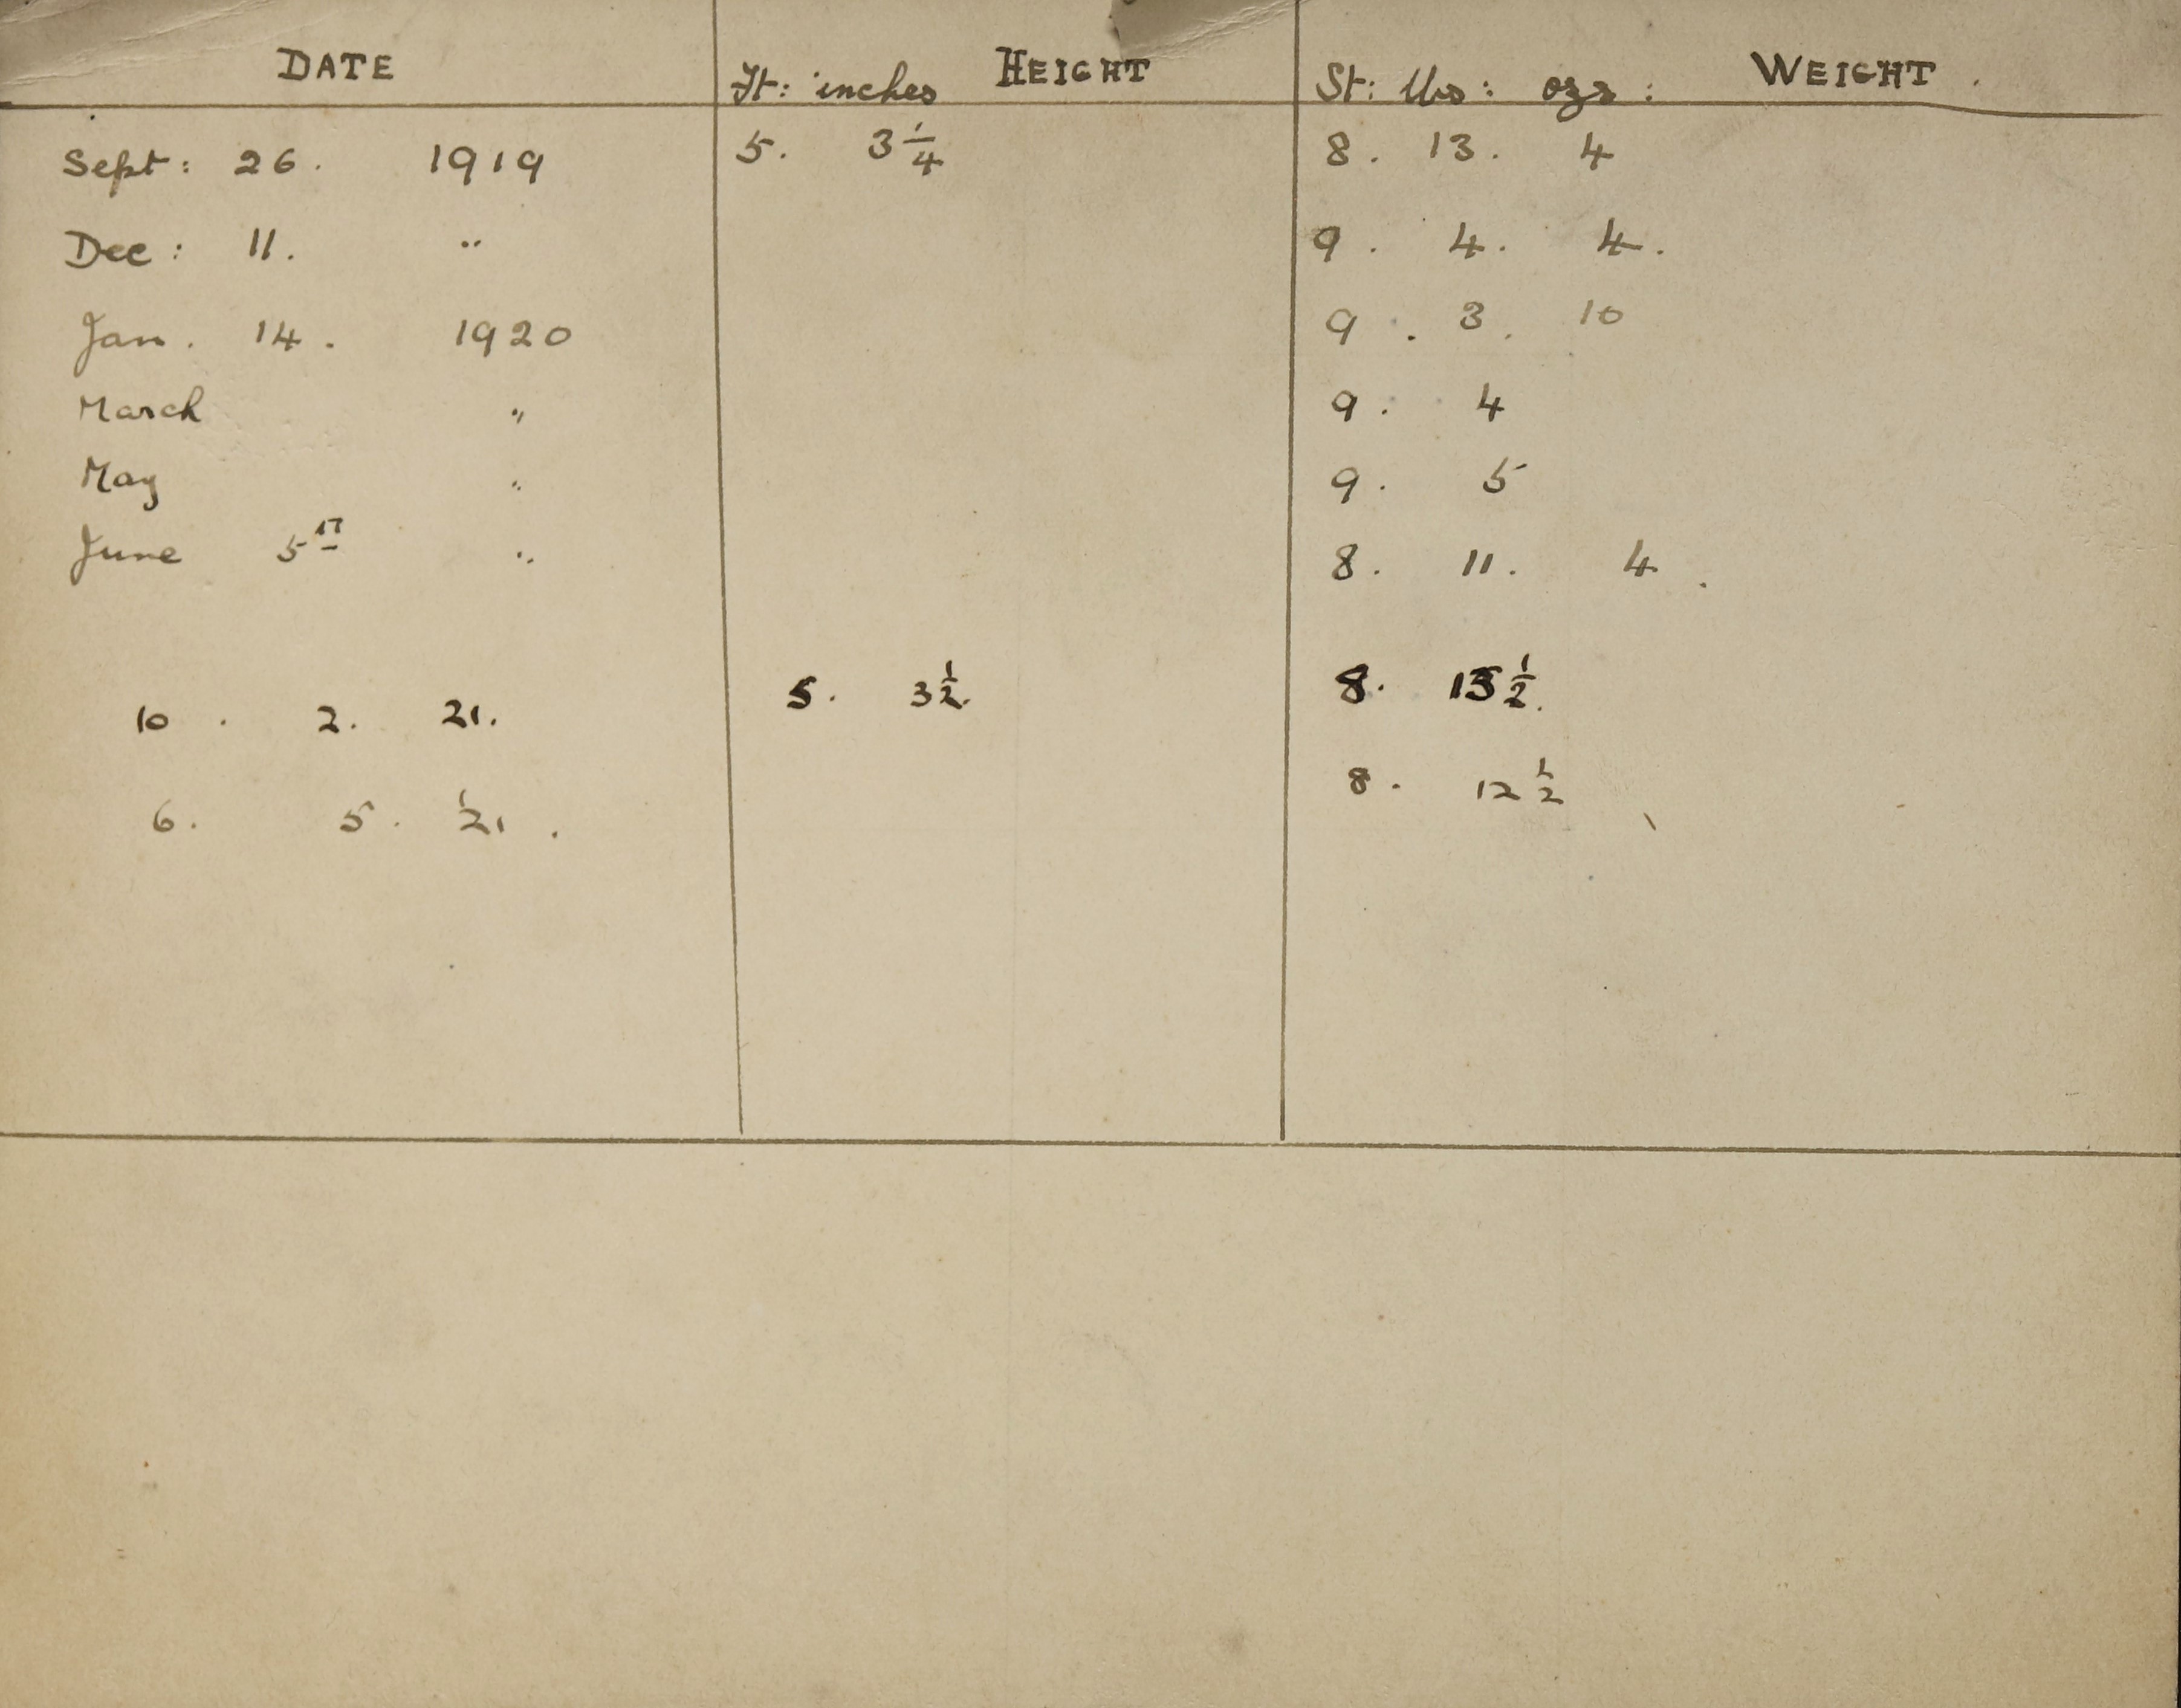 DATE Ft: inches HEIGHT St: lbs: ozs: WEIGHT.
Sept: 26. 1919 5. 3 1/4 8. 13. 4
Dec: 11. " 9. 4. 4.
Jan. 14. 1920 9. 3. 10
March " 9. 4
May " 9. 5
June 5th " 8. 11. 4.
10. 2. 21. 5. 3 1/2. 8. 13 1/2.
6. 5. 21. 8. 12 1/2